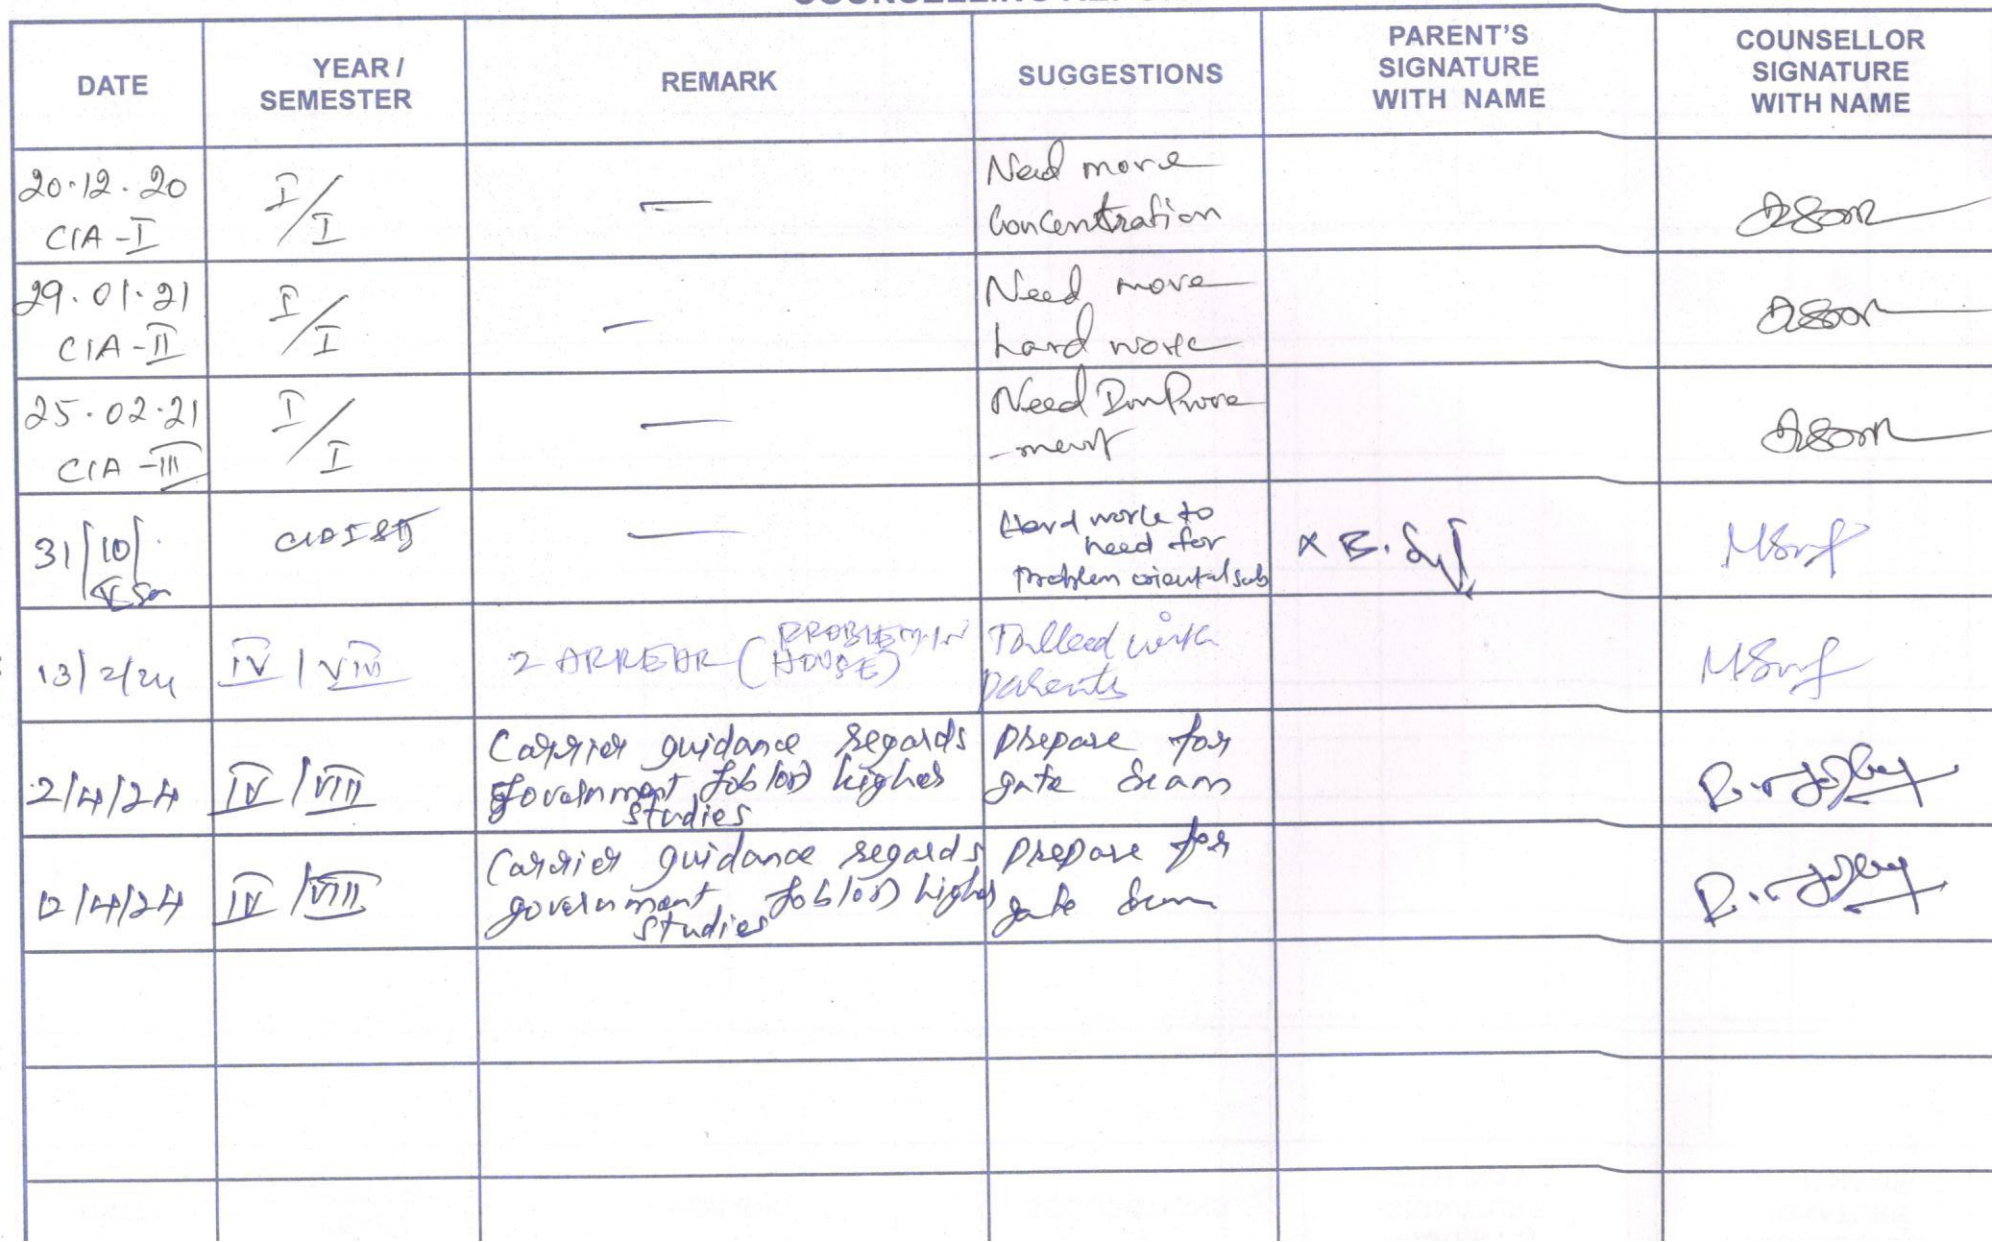 COUNSELLING REPORT
DATE
YEAR /
SEMESTER
REMARK
SUGGESTIONS
PARENT'S
SIGNATURE
WITH NAME
COUNSELLOR
SIGNATURE
WITH NAME
20.12.20
CIA - I
I/I
—
Need more
Concentration
29.01.21
CIA - II
I/I
—
Need more
hard work
25.02.21
CIA - III
I/I
—
Need Improve
-ment
31/10/
—
Hard work to
need for
Problem oriental sub
13/2/24
IV / VIII
2 ARREAR (PROBLEM IN
HOUSE)
Talked with
parents
2/4/24
IV / VIII
Carrier guidance regards
government job (or) higher
studies
prepare for
gate
12/4/24
IV / VIII
Carrier guidance regards
government job (or) higher
studies
prepare for
gate